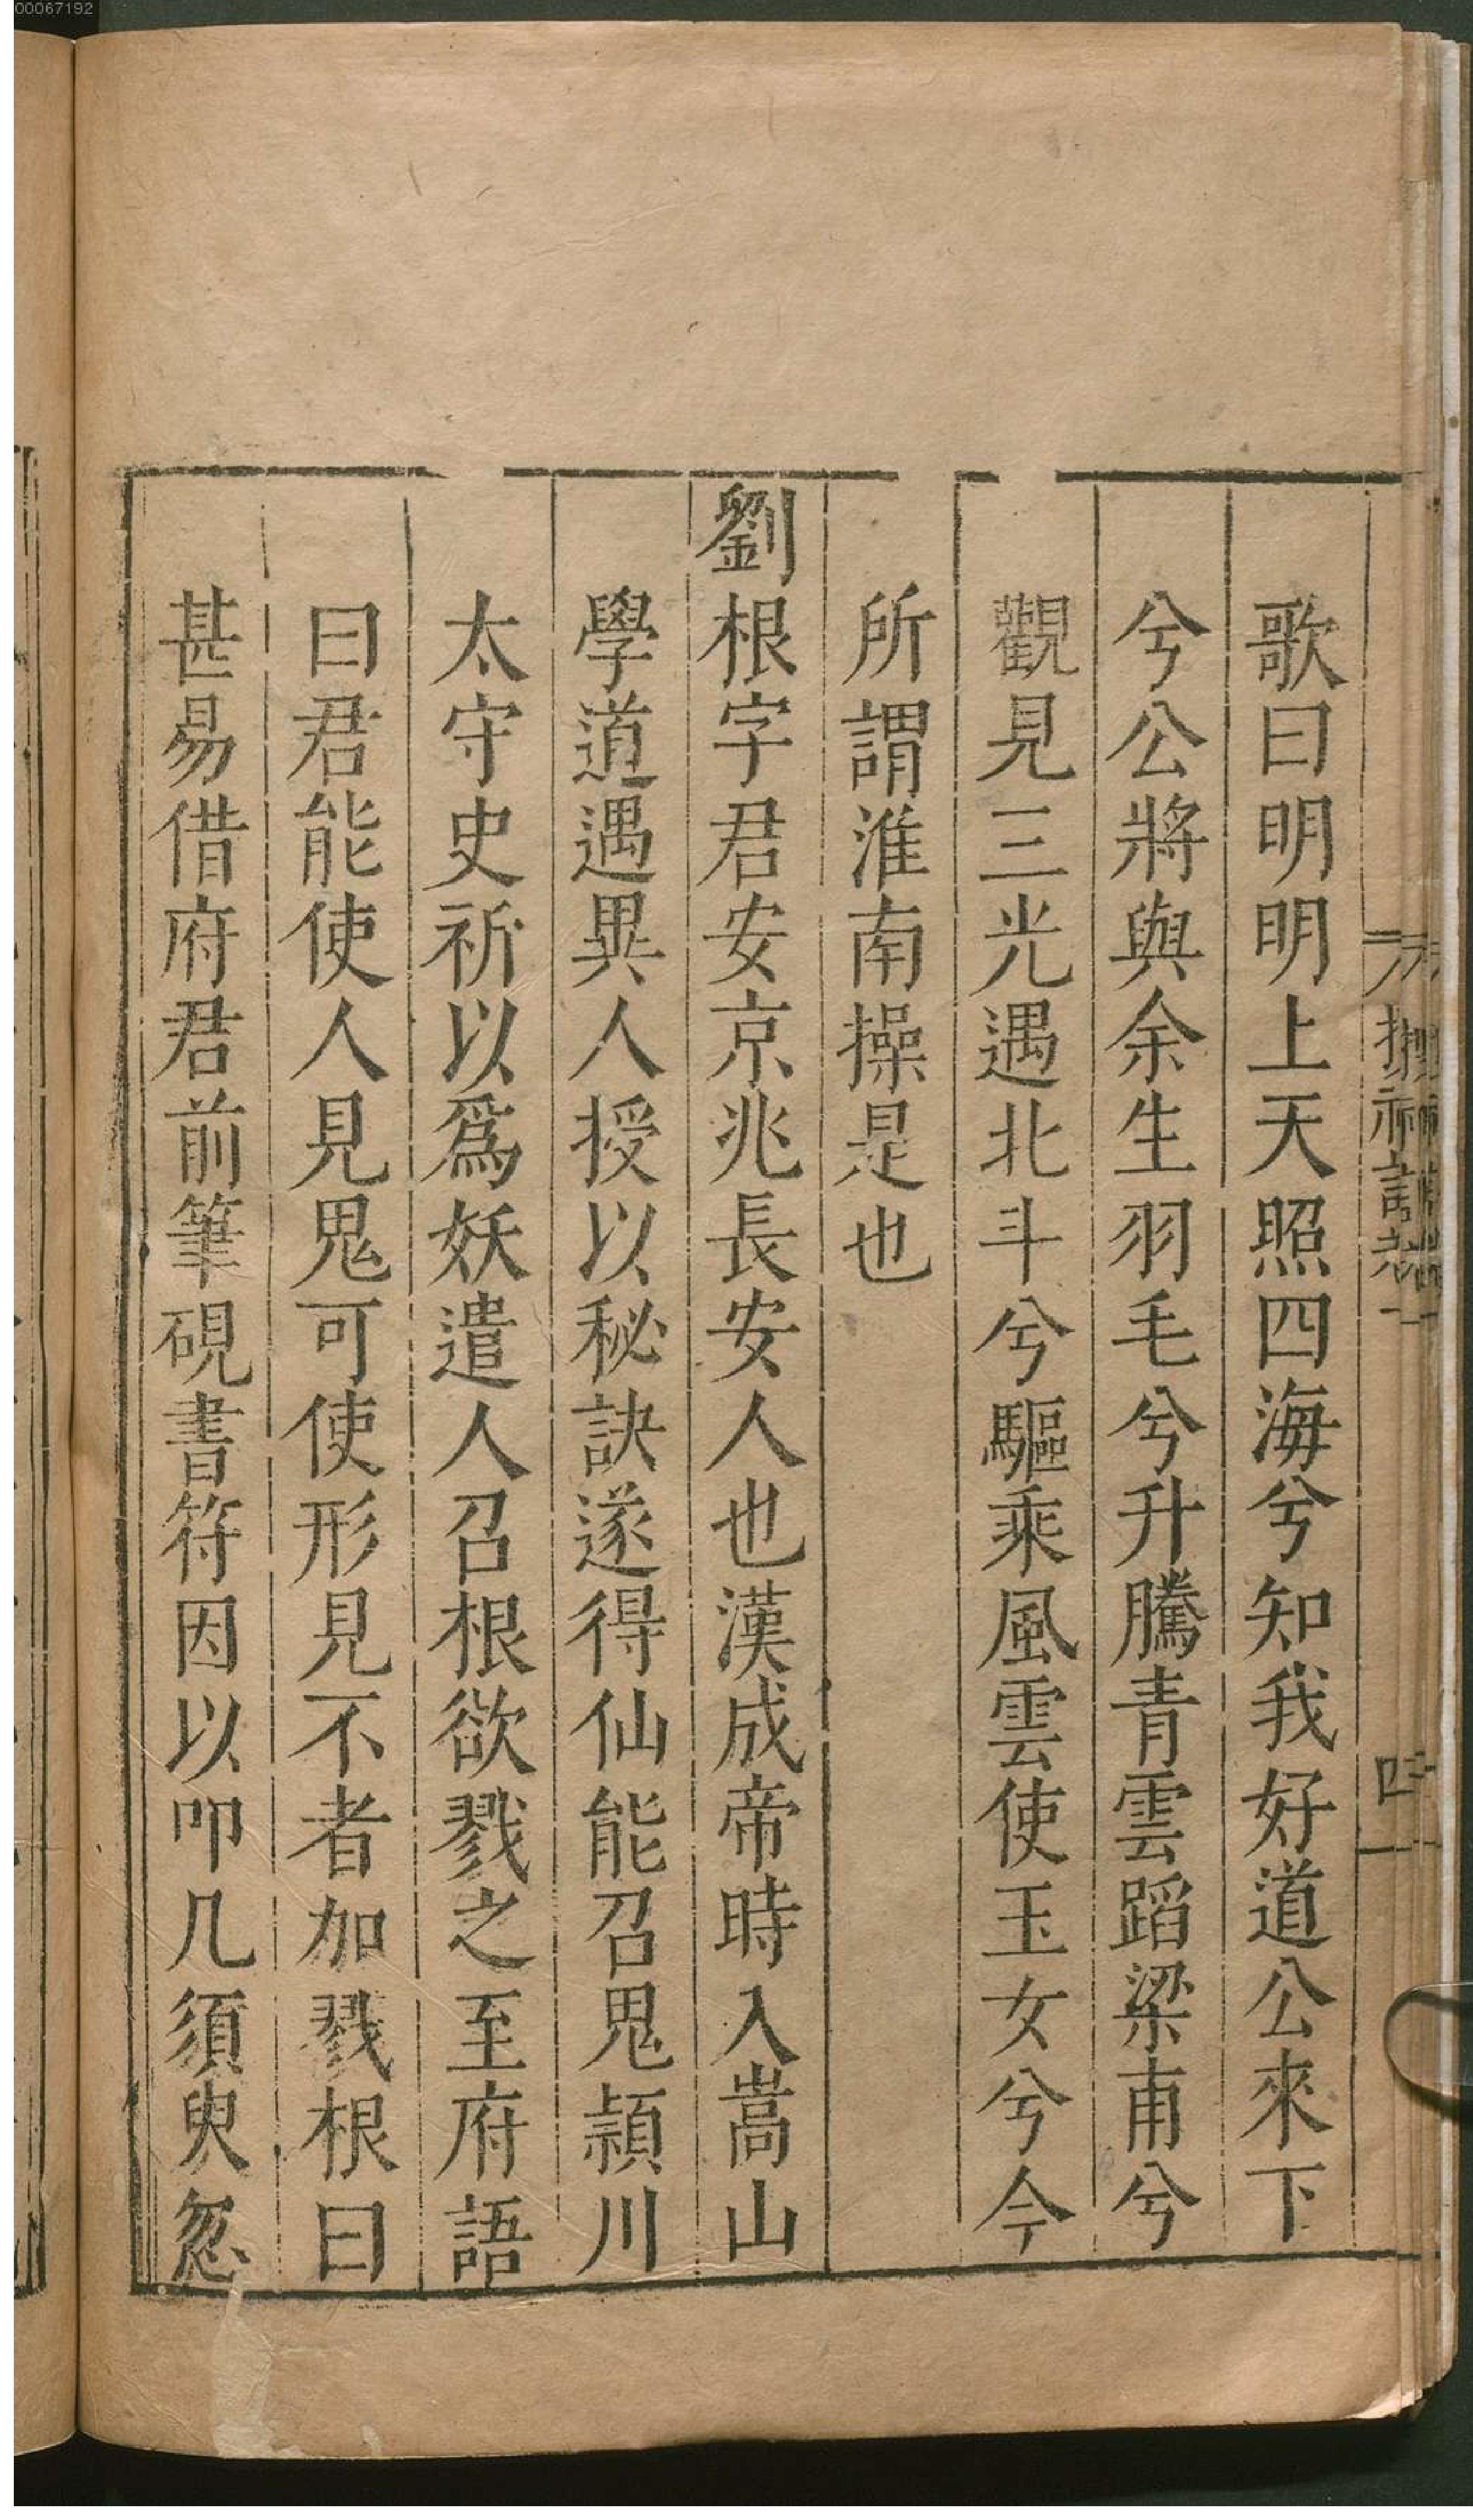 00067192
歌曰明明上天照四海兮知我好道公來下
兮公將與余生羽毛兮升騰青雲蹈梁甫兮
觀見三光遇北斗兮驅乘風雲使玉女兮今
所謂淮南操是也
劉根字君安京兆長安人也漢成帝時入嵩山
學道遇異人授以秘訣遂得仙能召鬼潁川
太守史祈以爲妖遣人召根欲戮之至府語
曰君能使人見鬼可使形見不者加戮根曰
甚易借府君前筆硯書符因以叩几須臾忽